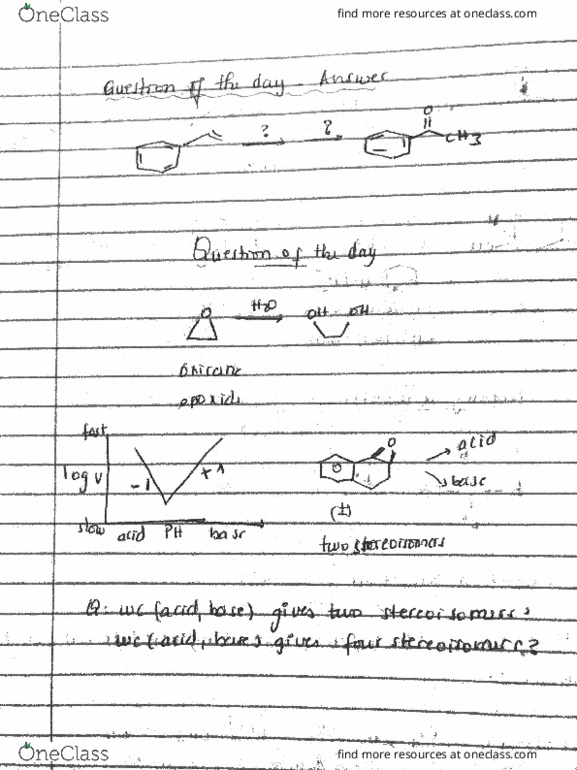 OneClass
find more resources at oneclass.com
Question of the day - Answer
? ? O CH3
Question of the day
O H2O OH OH
Oxirane
epoxide
fast
log v -1 +1 O acid
base
(±)
slow acid PH base
two stereoisomers
Q: wc (acid, base) gives two stereoisomers?
wc (acid, base) gives four stereoisomers?
OneClass
find more resources at oneclass.com